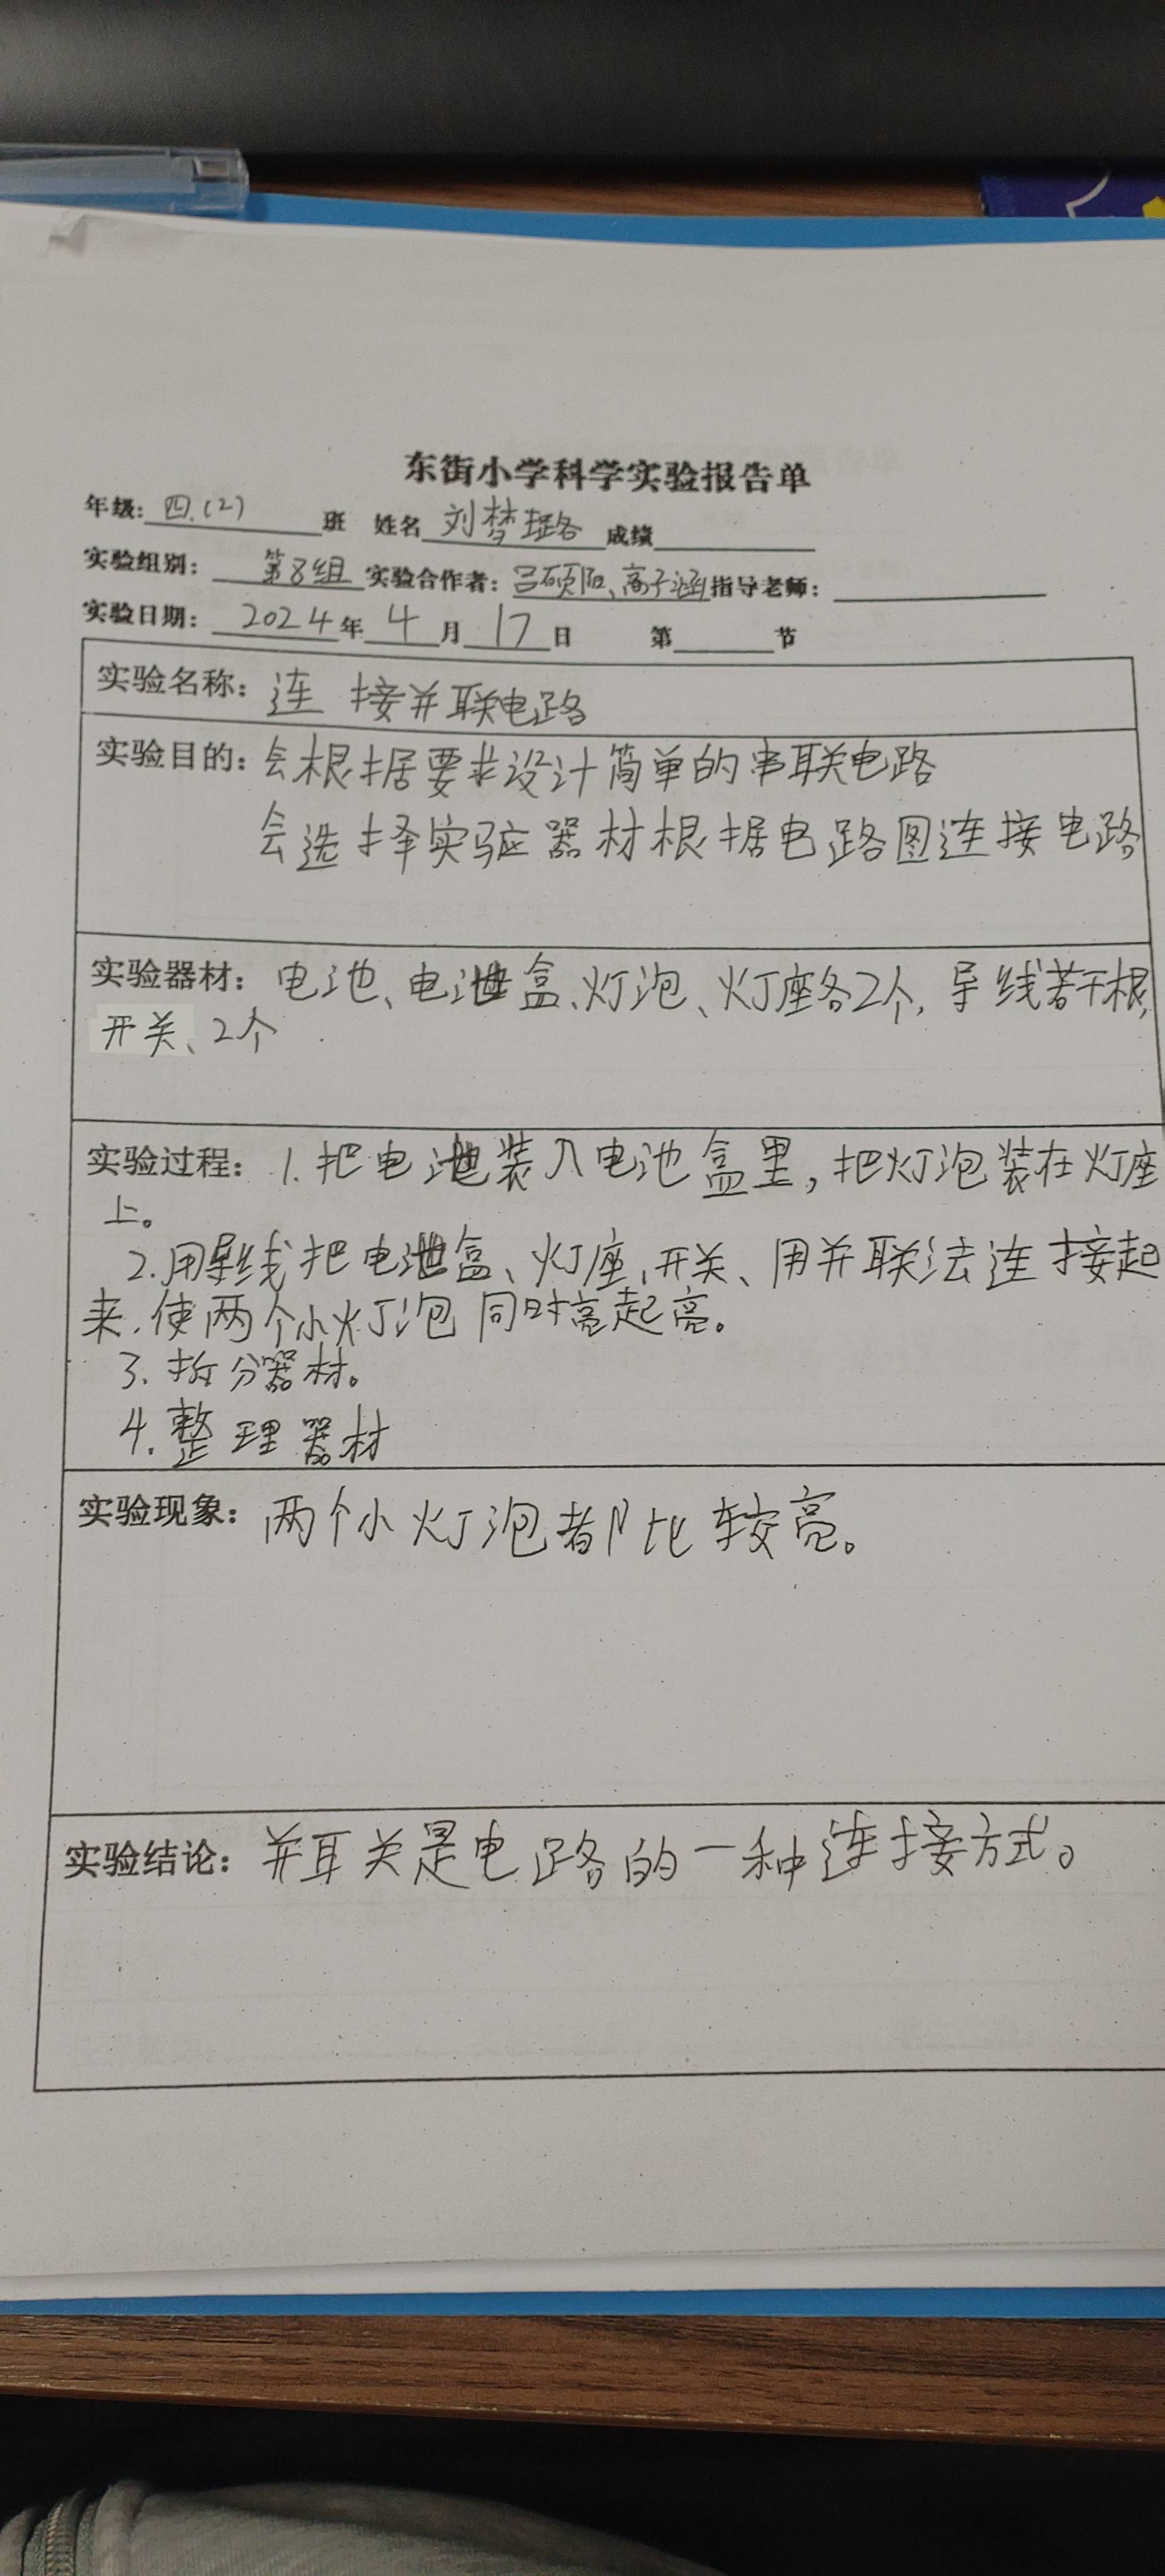 东街小学科学实验报告单
年级:四.(2)班 姓名 刘梦璐 成绩
实验组别: 第8组 实验合作者: 吕硕阳、高子涵 指导老师:
实验日期: 2024年4月17日 第 节
实验名称: 连接并联电路
实验目的: 会根据要求设计简单的串联电路
会选择实验器材根据电路图连接电路
实验器材: 电池、电池盒、灯泡、灯座各2个, 导线若干根,
开关、2个
实验过程: 1.把电池装入电池盒里,把灯泡装在灯座
上。
2.用导线把电池盒、灯座、开关、用并联法连接起
来.使两个小灯泡同时亮起亮。
3.拆分器材。
4.整理器材
实验现象: 两个小灯泡都比较亮。
实验结论: 并联是电路的一种连接方式。